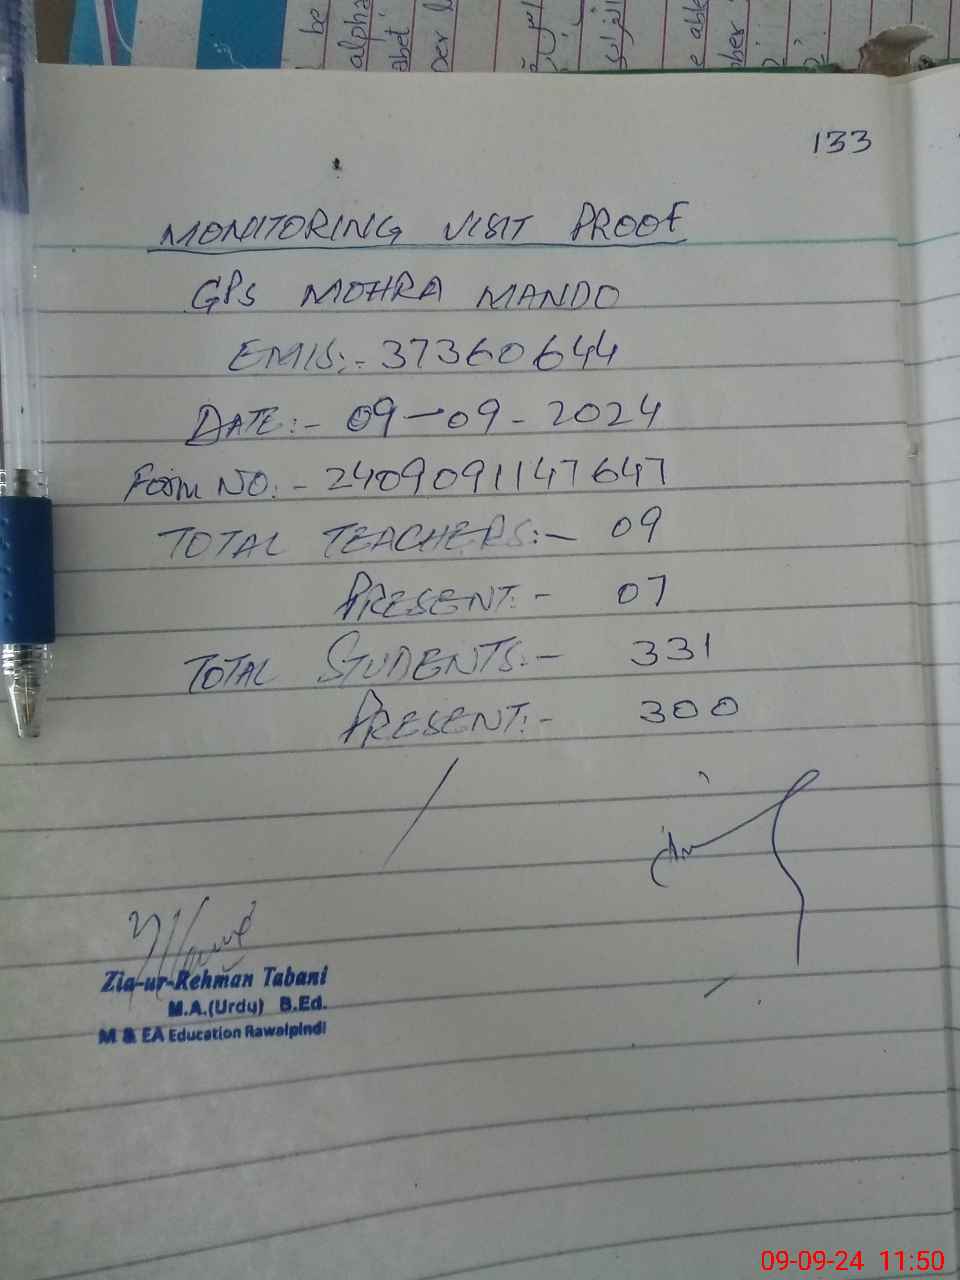 133
MONITORING VISIT PROOF
GPS MOHRA MANDO
EMIS:- 37360644
DATE:- 09-09-2024
Form NO:- 2409091147647
TOTAL TEACHERS:- 09
PRESENT:- 07
TOTAL STUDENTS:- 331
PRESENT:- 300
Zia-ur-Rehman Tabani
M.A.(Urdu) B.Ed.
M & EA Education Rawalpindi
09-09-24 11:50